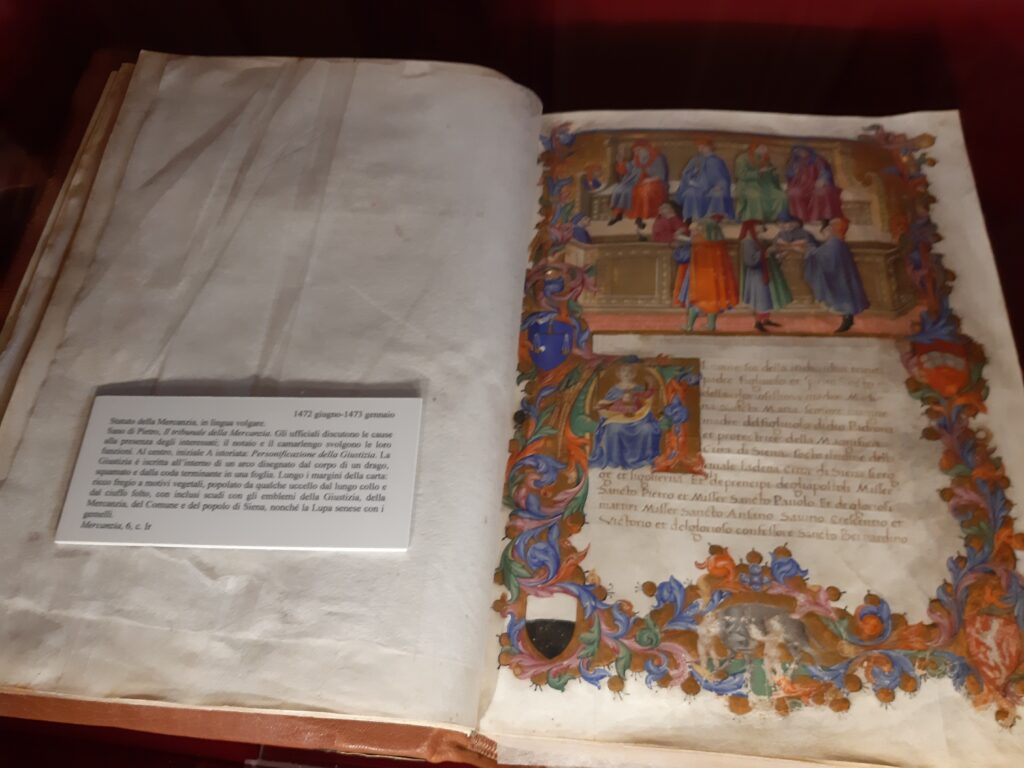 1472 giugno-1473 gennaio
Statuto della Mercanzia, in lingua volgare.
Sano di Pietro, Il tribunale della Mercanzia. Gli ufficiali discutono le cause
alla presenza degli interessati; il notaio e il camarlengo svolgono le loro
funzioni. Al centro, iniziale A istoriata: Personificazione della Giustizia. La
Giustizia è iscritta all'interno di un arco disegnato dal corpo di un drago,
squamato e dalla coda terminante in una foglia. Lungo i margini della carta:
ricco fregio a motivi vegetali, popolato da qualche uccello dal lungo collo e
dal ciuffo folto, con inclusi scudi con gli emblemi della Giustizia, della
Mercanzia, del Comune e del popolo di Siena, nonché la Lupa senese con i
gemelli.
Mercanzia, 6, c. Ir
padre figliuolo et
sancta Maria sempre
madre del figliuolo di dio
et
di Siena
Citta di Siena
ge et Et de prencipi degliapostoli Misser
Sancto Pietro et Misser Sancto Pauolo Et de gloriosi
martiri Misser Sancto Ansano Sauino Crescentio et
Victorio et del glorioso confessore Sancto Bernardino